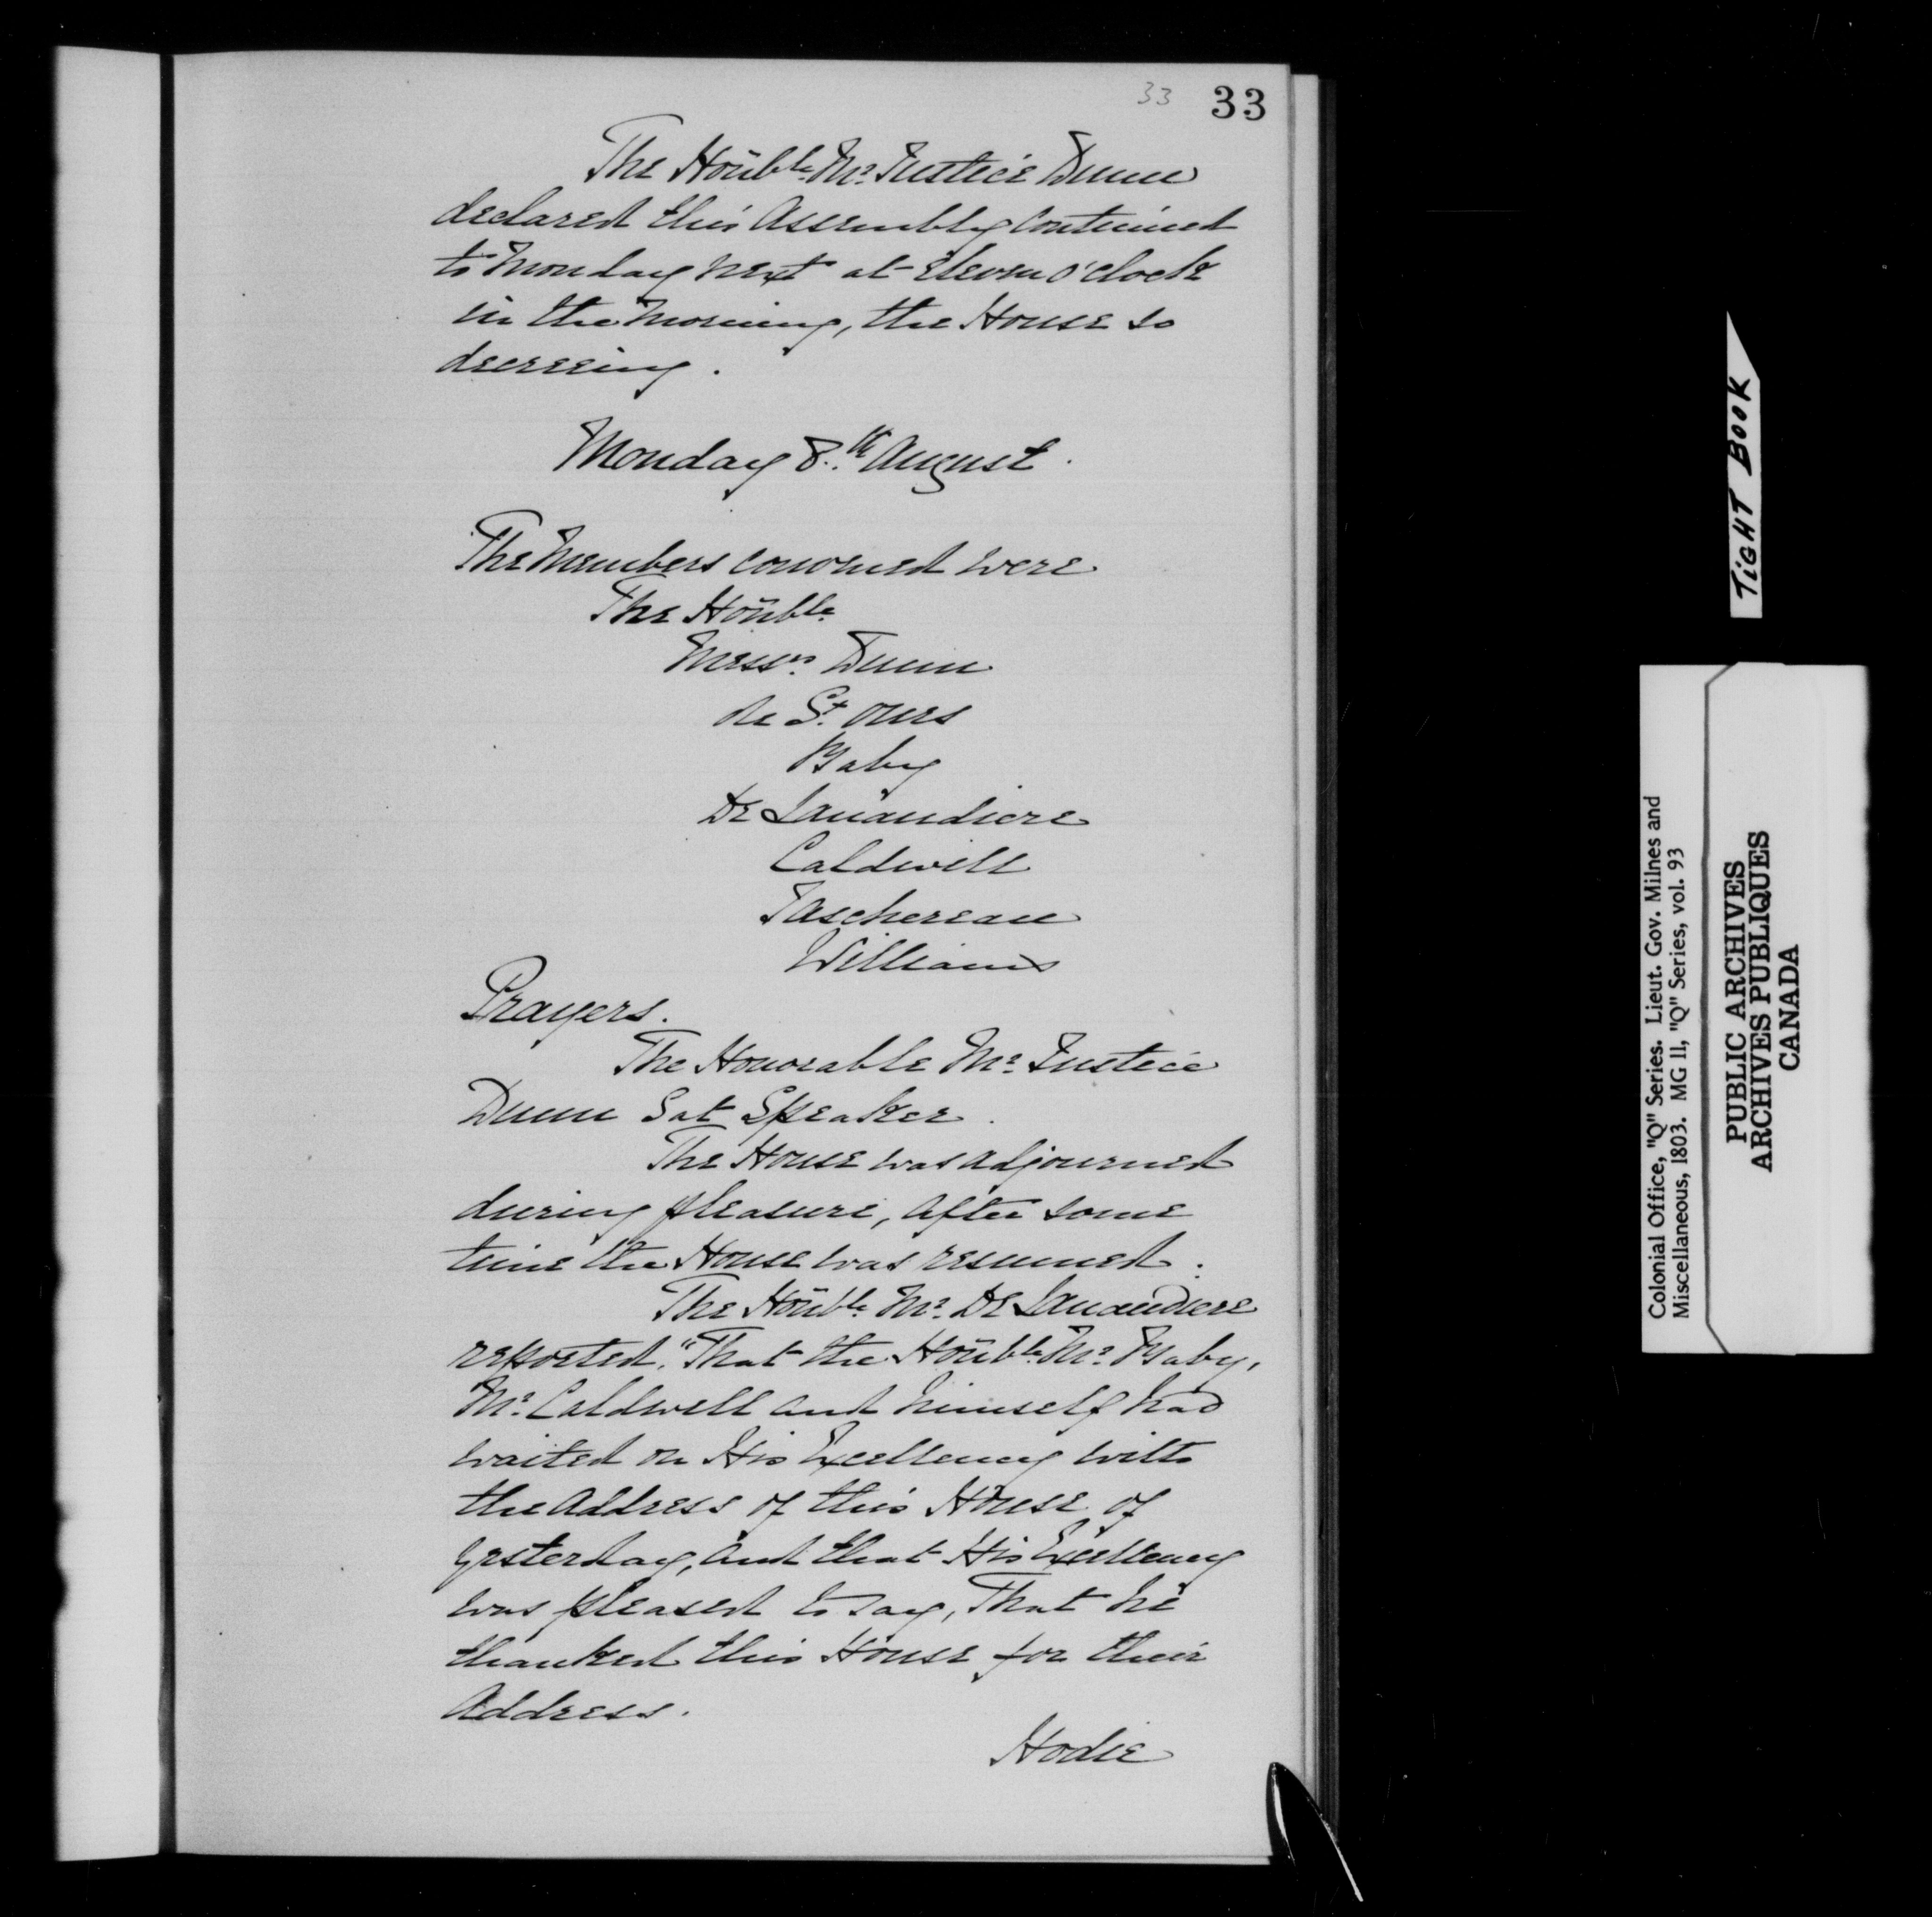 33 33
The Hoñble Mr. Justice Dunn
declared this Assembly continued
to Monday next at Eleven o'clock
in the Morning, the House so
decreeing.
Monday 8th August.
The Members convened were
The Hoñble
Messrs. Dunn
de St. Ours
Baby
De Lanaudiere
Caldwell
Taschereau
Williams
Prayers.
The Honorable Mr. Justice
Dunn Sat Speaker.
The House was adjourned
during pleasure, after some
time the House was resumed.
The Hoñble Mr. De Lanaudiere
reported, "That the Hoñble Mr. Baby,
Mr. Caldwell and himself had
waited on His Excellency with
the Address of this House of
yesterday, and that His Excellency
was pleased to say, That he
thanked this House for their
Address.
Hodie
TIGHT BOOK
Colonial Office, "Q" Series. Lieut. Gov. Milnes and
Miscellaneous, 1803. MG 11, "Q" Series, vol. 93
PUBLIC ARCHIVES
ARCHIVES PUBLIQUES
CANADA